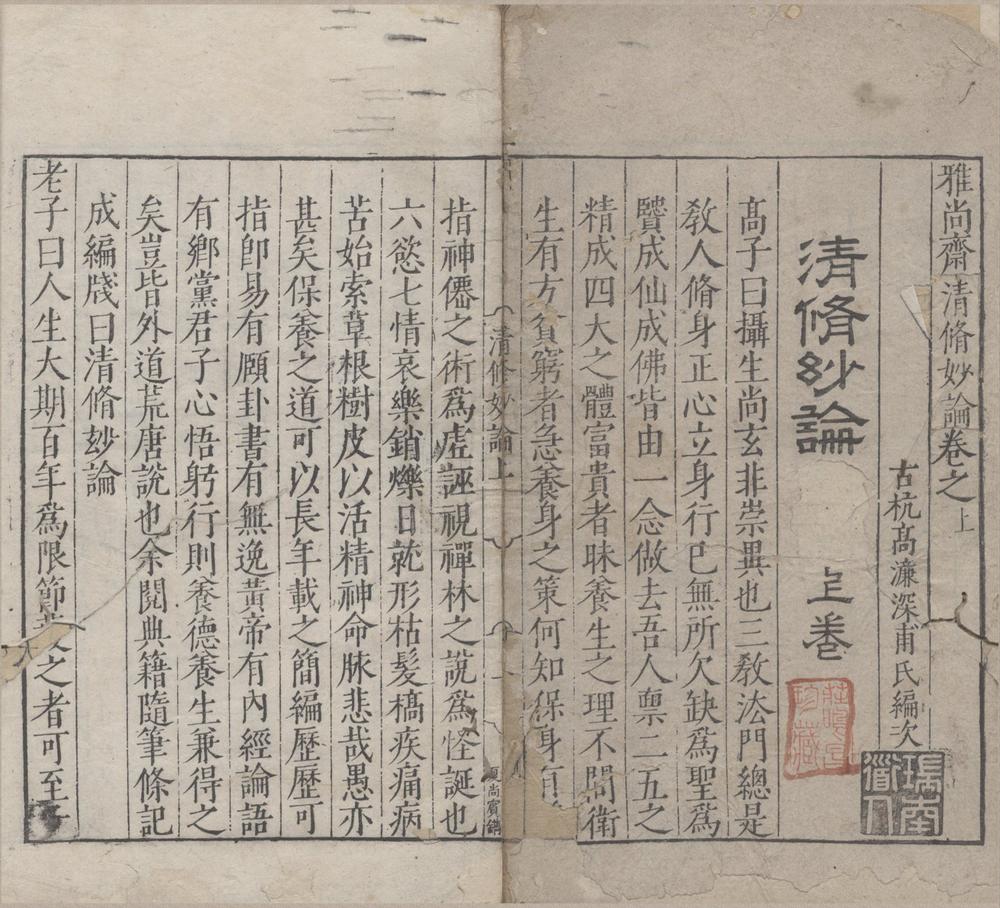 雅尚齋清脩妙論卷之上
古杭高濂深甫氏編次
清脩玅論 上卷
瑞南道人
高子曰攝生尚玄非崇異也三敎法門總是
敎人脩身正心立身行已無所欠缺爲聖爲
賢成仙成佛皆由一念做去吾人禀二五之
精成四大之體富貴者昧養生之理不問衛
生有方貧窮者急養身之策何知保身有
清修妙論上
夏尚賓鐫
指神僊之術爲虗誣視禪林之說爲怪誕也
六慾七情哀樂銷爍日就形枯髮槁疾痛病
苦始索草根樹皮以活精神命脉悲哉愚亦
甚矣保養之道可以長年載之簡編歷歷可
指卽易有頤卦書有無逸黃帝有內經論語
有鄉黨君子心悟躬行則養德養生兼得之
矣豈皆外道荒唐說也余閱典籍隨筆條記
成編牋曰清脩玅論
老子曰人生大期百年爲限節之者可至